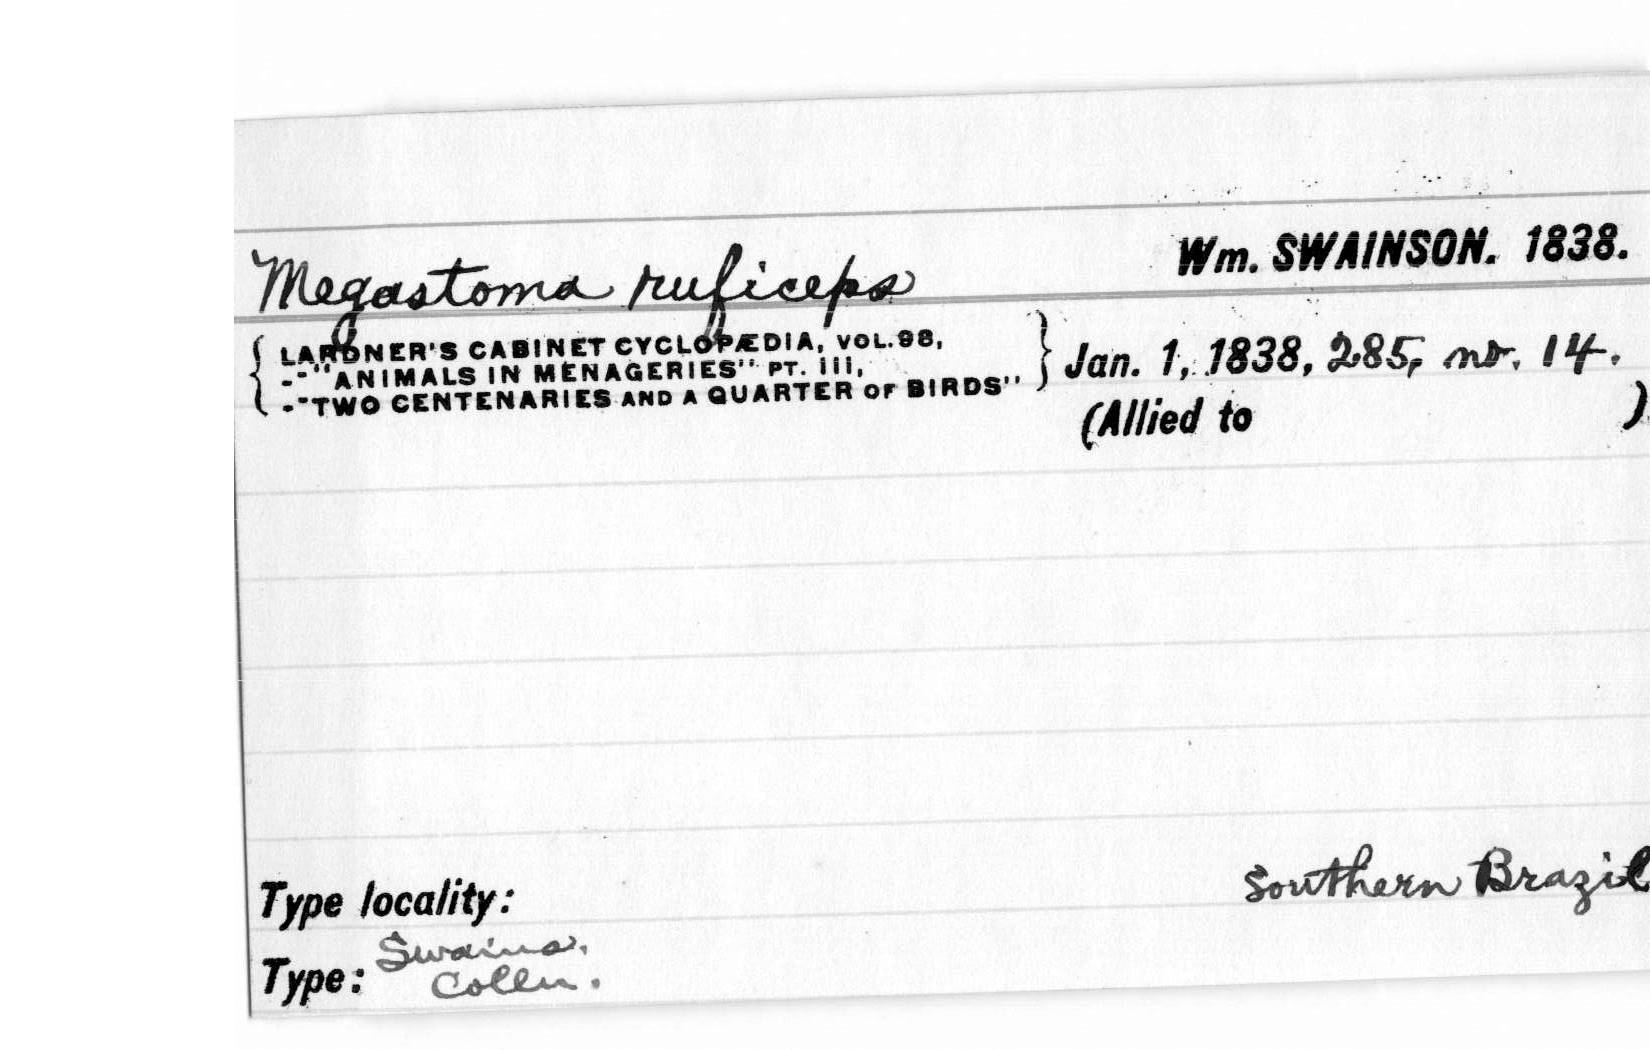 Megastoma ruficeps Wm. SWAINSON. 1838.
LARDNER'S CABINET CYCLOPÆDIA, VOL.98,
--"ANIMALS IN MENAGERIES" PT. III,
--"TWO CENTENARIES AND A QUARTER OF BIRDS"
Jan. 1, 1838, 285, no. 14.
(Allied to )
Type locality: Southern Brazil
Type: Swains.
Colln.